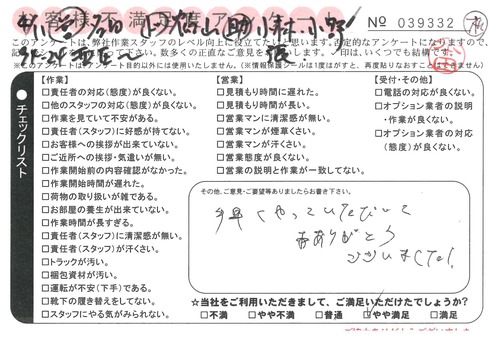 お客様不満足度アンケート
No 039332
このアンケートは、弊社作業スタッフのレベル向上に役立てたいと思います。否定的なアンケートになりますので、
数多くの正直なご意見を
印は、いくつでも結構です。
※このアンケートは、アンケート目的以外には使用いたしません。(※情報保護シールは1度はがすと、再度貼りなおすことはできません)
チェックリスト
【作業】
□責任者の対応(態度)が良くない。
□他のスタッフの対応(態度)が良くない。
□作業を見ていて不安がある。
□責任者(スタッフ)に好感が持てない。
□お客様への挨拶が出来ていない。
□ご近所への挨拶・気遣いが無い。
□作業開始前の内容確認がなかった。
□作業開始時間が遅れた。
□荷物の取り扱いが雑である。
□お部屋の養生が出来ていない。
□作業時間が長すぎる。
□責任者(スタッフ)に清潔感が無い。
□責任者(スタッフ)が汗くさい。
□トラックが汚い。
□梱包資材が汚い。
□運転が不安(下手)である。
□靴下の履き替えをしてない。
□スタッフにやる気がみられない。
【営業】
□見積もり時間に遅れた。
□見積もり時間が長い。
□営業マンに清潔感が無い。
□営業マンが煙草くさい。
□営業マンが汗くさい。
□営業態度が良くない。
□営業の説明と作業が一致してない。
【受付・その他】
□電話の対応が良くない。
□オプション業者の説明
・作業が良くない。
□オプション業者の対応
(態度)が良くない。
その他、ご意見・ご要望等ありましたらお書き下さい。
手早くやっていただいて
ありがとう
ございました!
☆当社をご利用いただきまして、ご満足いただけたでしょうか?
□不満 □やや不満 □普通 □やや満足 □満足
ご協力ありがとうございました